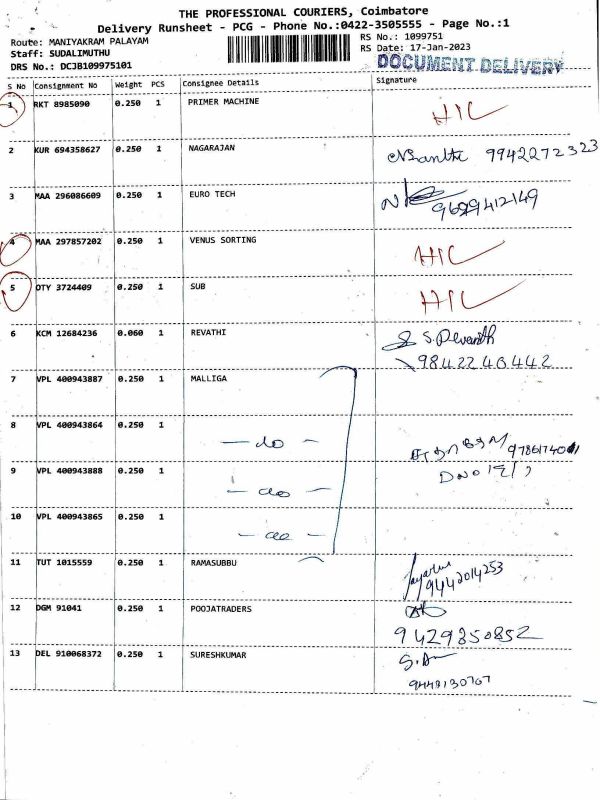 THE PROFESSIONAL COURIERS, Coimbatore
Delivery Runsheet - PCG - Phone No.:0422-3505555 - Page No.:1
Route: MANIYAKRAM PALAYAM
RS No.: 1099751
Staff: SUDALIMUTHU
RS Date: 17-Jan-2023
DRS No.: DCJB109975101
DOCUMENT DELIVERY
S No Consignment No Weight PCS Consignee Details Signature
1 RKT 8985090 0.250 1 PRIMER MACHINE HIC
2 KUR 694358627 0.250 1 NAGARAJAN 9942272323
3 MAA 296086609 0.250 1 EURO TECH 9629412149
4 MAA 297857202 0.250 1 VENUS SORTING HIC
5 OTY 3724409 0.250 1 SUB HIC
6 KCM 12684236 0.060 1 REVATHI
9842240442
7 VPL 400943887 0.250 1 MALLIGA
8 VPL 400943864 0.250 1 — do —
9 VPL 400943888 0.250 1 — do —
10 VPL 400943865 0.250 1 — do —
11 TUT 1015559 0.250 1 RAMASUBBU
9442014253
12 DGM 91041 0.250 1 POOJATRADERS
9429350852
13 DEL 910068372 0.250 1 SURESHKUMAR